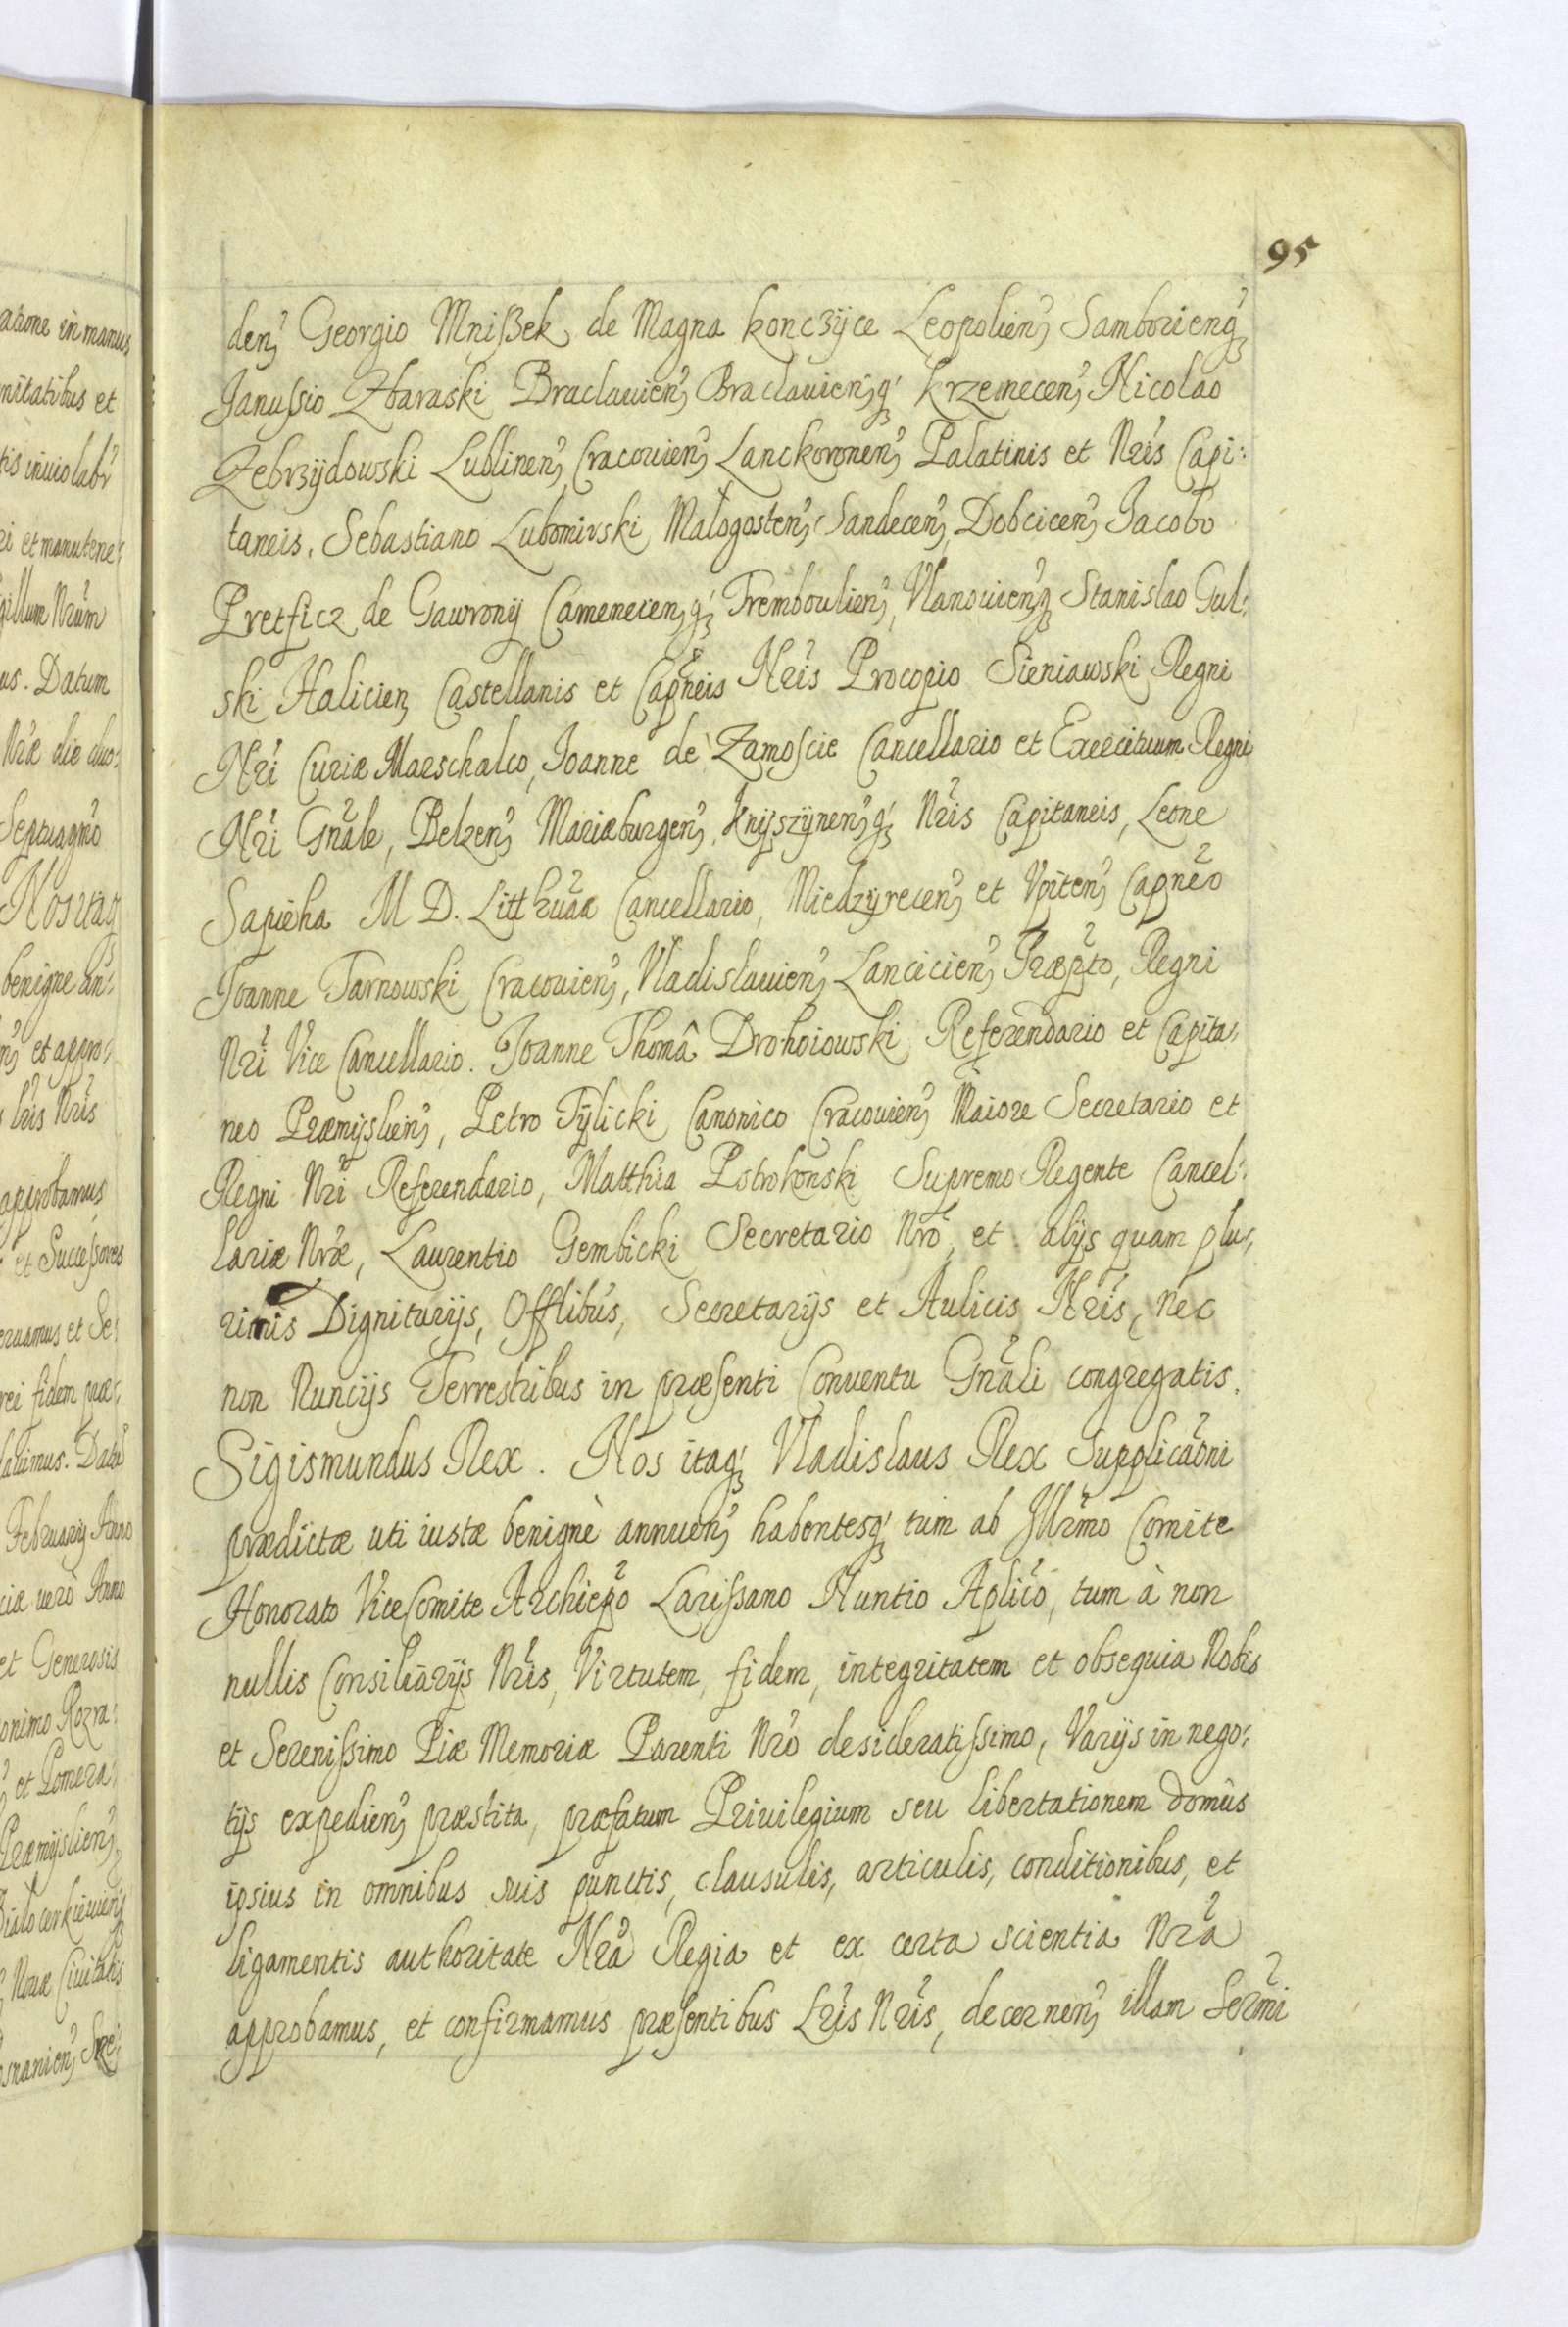 95
den, Georgio Mnißek de Magna konczÿce Leopolien, Samborienq,
Janussio Zbaraski Braclauien, Braclauien,q, krzemecen, Nicolao
Zebrzÿdowski Lublinen, Cracouien, Lanckoronen, Palatinis et Nris Capi:
taneis. Sebastiano Lubomirski Malogosten, Sandecen, Dobcicen, Jacobo
Pretficz de Gawronÿ Camenecen,q, Tremboulien, Vlanouien,q, Stanislao Gul:
ski Halicien, Castellanis et Capneis Nris Procopio Sieniawski Regni
Nri Curiæ Marschalco, Joanne de Zamoscie Cancellario et Exercituum Regni
Nri Gnale, Belzen, Mariæburgen, Knÿszÿnen,q, Nris Capitaneis, Leone
Sapieha M D. Litthuaæ Cancellario, Miedzÿrecen, et Vpiten, Capneo
Joanne Tarnowski Cracouien, Vladislauien, Lancicien, Præpto, Regni
Nri Vice Cancellario. Joanne Thomâ Drohoiowski Referendario et Capita:
neo Præmÿslien, Petro Tÿlicki Canonico Cracouien, Maiore Secretario et
Regni Nri Referendario, Matthia Pstrokonski Supremo Regente Cancel:
lariæ Nræ, Laurentio Gembicki Secretario Nro, et alÿs quam plu:
rimis Dignitarÿs, Offlibus, Secretarÿs et Aulicis Nris, nec
non Nuncÿs Terrestribus in præsenti Conuentu Gnali congregatis.
Sigismundus Rex. Nos itaq, Vladislaus Rex Supplicaoni
prædictæ uti iustæ benignè annuen, habentesq, tum ab Jllrmo Comite
Honorato ViceComite Archiepo Larissano Nuntio Aplico, tum à non
nullis Consiliarÿs Nris, Virtutem, fidem, integritatem et obsequia Nobis
et Serenissimo Piæ Memoriæ Parenti Nro desideratissimo, Varÿs in nego:
tÿs expedien, præstita, præfatum Priuilegium seu libertationem domûs
ipsius in omnibus suis punctis, clausulis, articulis, conditionibus, et
ligamentis authoritate Nra Regia et ex certa scientia Nra
approbamus, et confirmamus præsentibus Lris Nris, decernen, illam Sermi